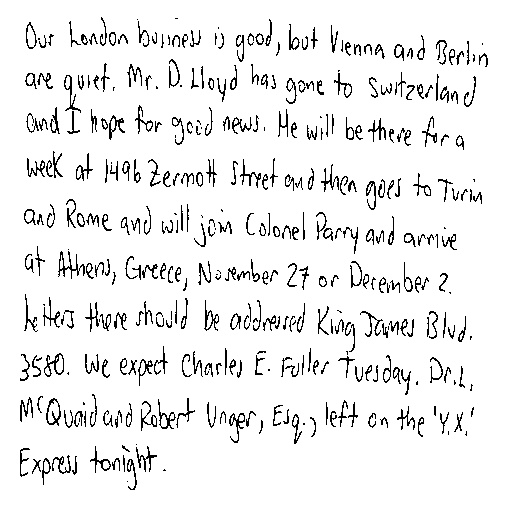 Our London business is good, but Vienna and Berlin
are quiet. Mr. D. Lloyd has gone to Switzerland
and I hope for good news. He will be there for a
week at 1496 Zermott Street and then goes to Turin
and Rome and will join Colonel Parry and arrive
at Athens, Greece, November 27 or December 2.
Letters there should be addressed King James Blvd.
3580. We expect Charles E. Fuller Tuesday. Dr. L.
McQuaid and Robert Unger, Esq., left on the 'Y.X.'
Express tonight.